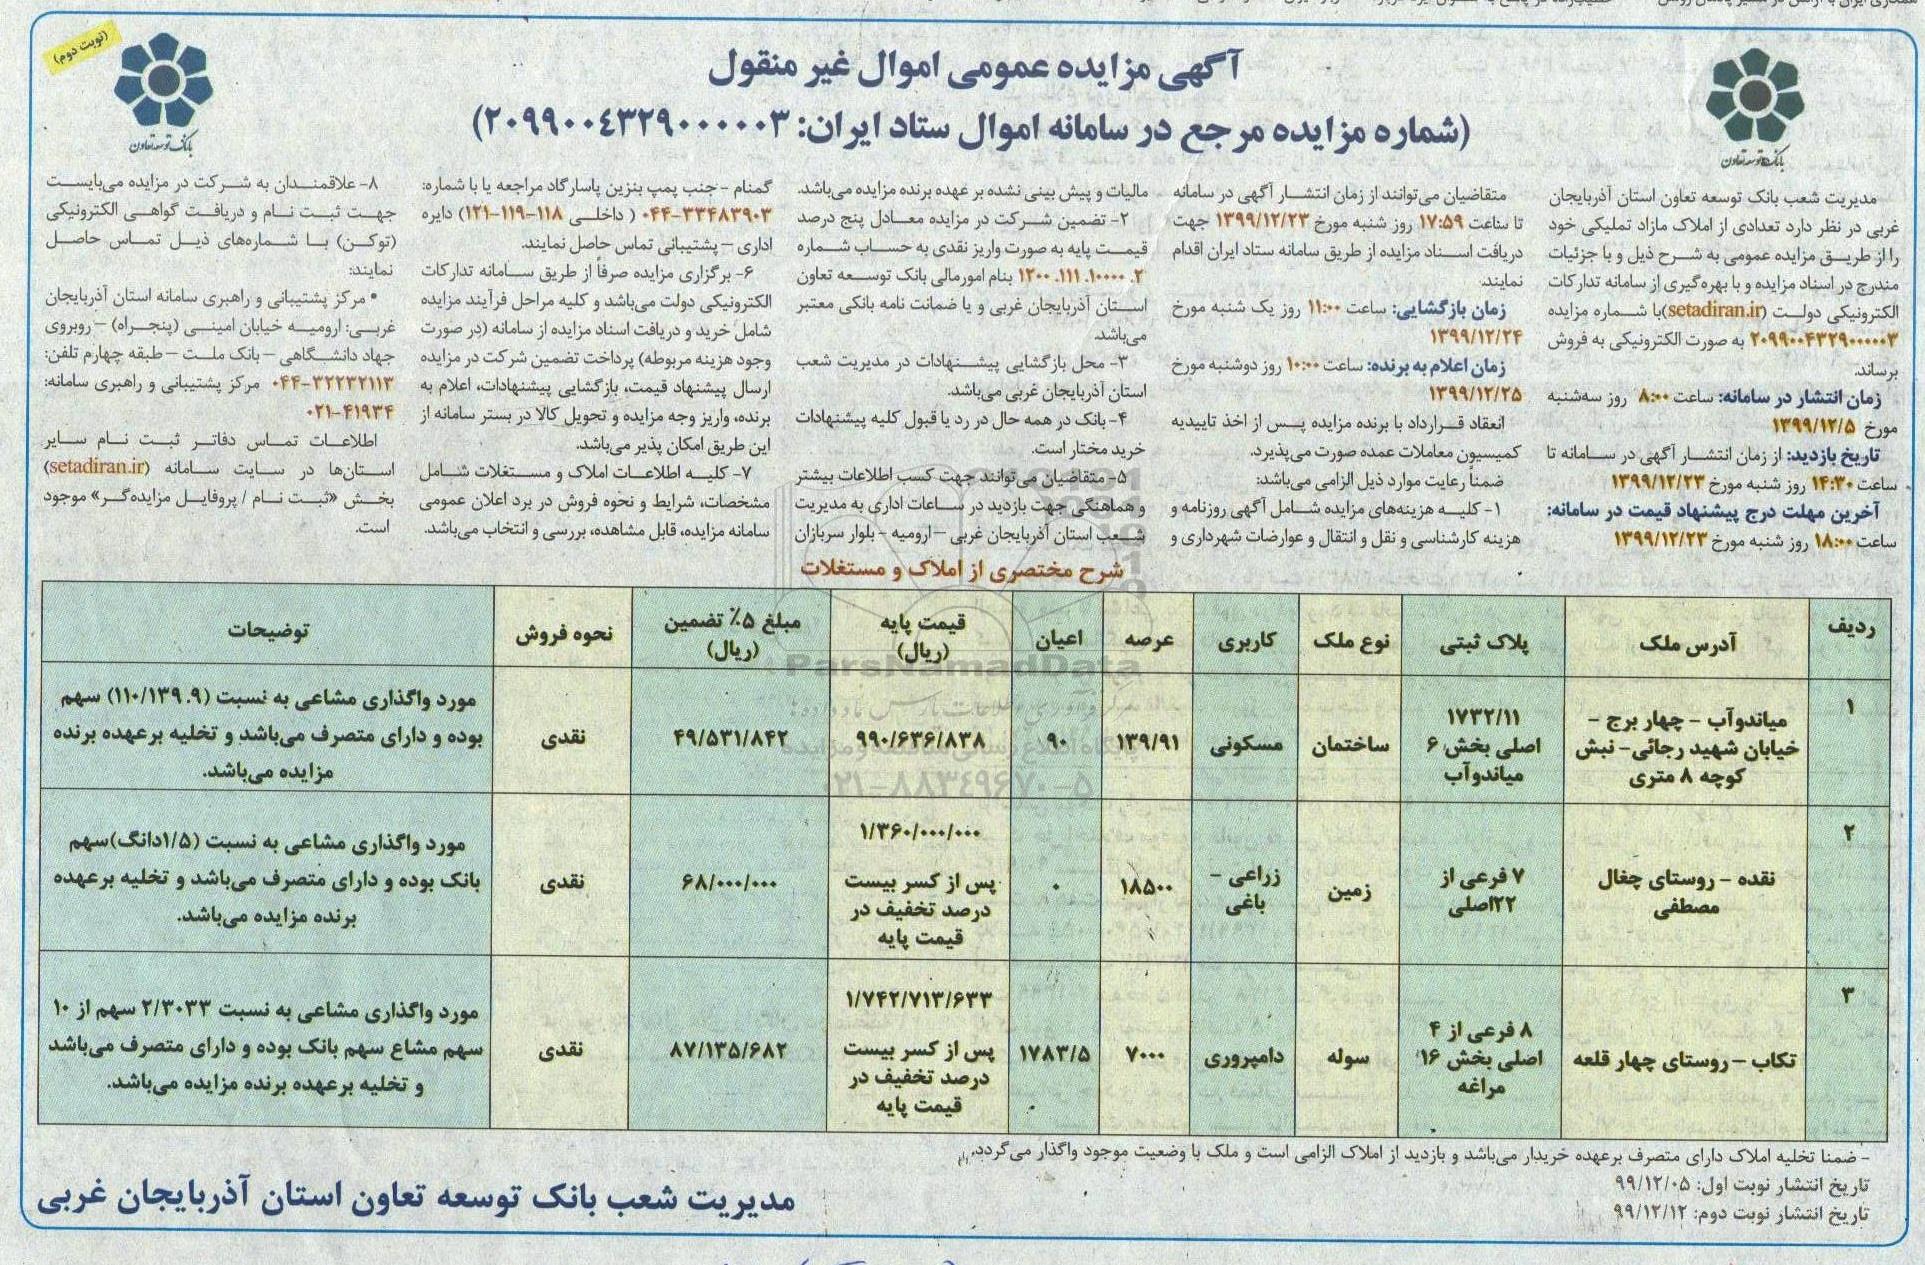 (نوبت دوم)
بانک توسعه تعاون
بانک توسعه تعاون
آگهی مزایده عمومی اموال غیر منقول
(شماره مزایده مرجع در سامانه اموال ستاد ایران: ۲۰۹۹۰۰۴۳۲۹۰۰۰۰۰۳)
مدیریت شعب بانک توسعه تعاون استان آذربایجان
غربی در نظر دارد تعدادی از املاک مازاد تملیکی خود
را از طریق مزایده عمومی به شرح ذیل و با جزئیات
مندرج در اسناد مزایده و با بهره‌گیری از سامانه تدارکات
الکترونیکی دولت (setadiran.ir)با شماره مزایده
۲۰۹۹۰۰۴۳۲۹۰۰۰۰۰۳ به صورت الکترونیکی به فروش
برساند.
زمان انتشار در سامانه: ساعت ۸:۰۰ روز سه‌شنبه
مورخ ۱۳۹۹/۱۲/۵
تاریخ بازدید: از زمان انتشار آگهی در سامانه تا
ساعت ۱۴:۳۰ روز شنبه مورخ ۱۳۹۹/۱۲/۲۳
آخرین مهلت درج پیشنهاد قیمت در سامانه:
ساعت ۱۸:۰۰ روز شنبه مورخ ۱۳۹۹/۱۲/۲۳
متقاضیان می‌توانند از زمان انتشار آگهی در سامانه
تا ساعت ۱۷:۵۹ روز شنبه مورخ ۱۳۹۹/۱۲/۲۳ جهت
دریافت اسناد مزایده از طریق سامانه ستاد ایران اقدام
نمایند.
زمان بازگشایی: ساعت ۱۱:۰۰ روز یک شنبه مورخ
۱۳۹۹/۱۲/۲۴
زمان اعلام به برنده: ساعت ۱۰:۰۰ روز دوشنبه مورخ
۱۳۹۹/۱۲/۲۵
انعقاد قرارداد با برنده مزایده پس از اخذ تاییدیه
کمیسیون معاملات عمده صورت می‌پذیرد.
ضمناً رعایت موارد ذیل الزامی می‌باشد:
۱- کلیه هزینه‌های مزایده شامل آگهی روزنامه و
هزینه کارشناسی و نقل و انتقال و عوارضات شهرداری و
مالیات و پیش بینی نشده بر عهده برنده مزایده می‌باشد.
۲- تضمین شرکت در مزایده معادل پنج درصد
قیمت پایه به صورت واریز نقدی به حساب شماره
۱۲۰۰.۱۱۱.۱۰۰۰۰.۲ بنام امورمالی بانک توسعه تعاون
استان آذربایجان غربی و یا ضمانت نامه بانکی معتبر
می‌باشد.
۳- محل بازگشایی پیشنهادات در مدیریت شعب
استان آذربایجان غربی می‌باشد.
۴- بانک در همه حال در رد یا قبول کلیه پیشنهادات
خرید مختار است.
۵- متقاضیان می‌توانند جهت کسب اطلاعات بیشتر
و هماهنگی جهت بازدید در ساعات اداری به مدیریت
شعب استان آذربایجان غربی – ارومیه - بلوار سربازان
گمنام - جنب پمپ بنزین پاسارگاد مراجعه یا با شماره:
۰۴۴-۳۳۴۸۳۹۰۳ ( داخلی ۱۱۸-۱۱۹-۱۲۱) دایره
اداری – پشتیبانی تماس حاصل نمایند.
۶- برگزاری مزایده صرفاً از طریق سامانه تدارکات
الکترونیکی دولت می‌باشد و کلیه مراحل فرآیند مزایده
شامل خرید و دریافت اسناد مزایده از سامانه (در صورت
وجود هزینه مربوطه) پرداخت تضمین شرکت در مزایده
ارسال پیشنهاد قیمت، بازگشایی پیشنهادات، اعلام به
برنده، واریز وجه مزایده و تحویل کالا در بستر سامانه از
این طریق امکان پذیر می‌باشد.
۷- کلیه اطلاعات املاک و مستغلات شامل
مشخصات، شرایط و نحوه فروش در برد اعلان عمومی
سامانه مزایده، قابل مشاهده، بررسی و انتخاب می‌باشد.
۸- علاقمندان به شرکت در مزایده می‌بایست
جهت ثبت نام و دریافت گواهی الکترونیکی
(توکن) با شماره‌های ذیل تماس حاصل
نمایند:
• مرکز پشتیبانی و راهبری سامانه استان آذربایجان
غربی: ارومیه خیابان امینی (پنجراه) – روبروی
جهاد دانشگاهی – بانک ملت – طبقه چهارم تلفن:
۰۴۴-۳۲۲۳۲۱۱۳ مرکز پشتیبانی و راهبری سامانه:
۰۲۱-۴۱۹۳۴
اطلاعات تماس دفاتر ثبت نام سایر
استان‌ها در سایت سامانه (setadiran.ir)
بخش «ثبت نام / پروفایل مزایده‌گر» موجود
است.
شرح مختصری از املاک و مستغلات
ردیف آدرس ملک پلاک ثبتی نوع ملک کاربری عرصه اعیان قیمت پایه (ریال) مبلغ ۵٪ تضمین (ریال) نحوه فروش توضیحات
۱ میاندوآب - چهار برج - خیابان شهید رجائی- نبش کوچه ۸ متری ۱۷۳۲/۱۱ اصلی بخش ۶ میاندوآب ساختمان مسکونی ۱۳۹/۹۱ ۹۰ ۹۹۰/۶۳۶/۸۳۸ ۴۹/۵۳۱/۸۴۲ نقدی مورد واگذاری مشاعی به نسبت (۱۱۰/۱۳۹.۹) سهم بوده و دارای متصرف می‌باشد و تخلیه برعهده برنده مزایده می‌باشد.
۲ نقده - روستای چغال مصطفی ۷ فرعی از ۲۲اصلی زمین زراعی - باغی ۱۸۵۰۰ ۰ ۱/۳۶۰/۰۰۰/۰۰۰ پس از کسر بیست درصد تخفیف در قیمت پایه ۶۸/۰۰۰/۰۰۰ نقدی مورد واگذاری مشاعی به نسبت (۱/۵دانگ)سهم بانک بوده و دارای متصرف می‌باشد و تخلیه برعهده برنده مزایده می‌باشد.
۳ تکاب - روستای چهار قلعه ۸ فرعی از ۴ اصلی بخش ۱۶ مراغه سوله دامپروری ۷۰۰۰ ۱۷۸۳/۵ ۱/۷۴۲/۷۱۳/۶۳۳ پس از کسر بیست درصد تخفیف در قیمت پایه ۸۷/۱۳۵/۶۸۲ نقدی مورد واگذاری مشاعی به نسبت ۲/۳۰۳۳ سهم از ۱۰ سهم مشاع سهم بانک بوده و دارای متصرف می‌باشد و تخلیه برعهده برنده مزایده می‌باشد.
ParsNamadData
۰۲۱-۸۸۳۴۹۶۷۰-۵
- ضمنا تخلیه املاک دارای متصرف برعهده خریدار می‌باشد و بازدید از املاک الزامی است و ملک با وضعیت موجود واگذار می‌گردد.
تاریخ انتشار نوبت اول: ۹۹/۱۲/۰۵
تاریخ انتشار نوبت دوم: ۹۹/۱۲/۱۲
مدیریت شعب بانک توسعه تعاون استان آذربایجان غربی